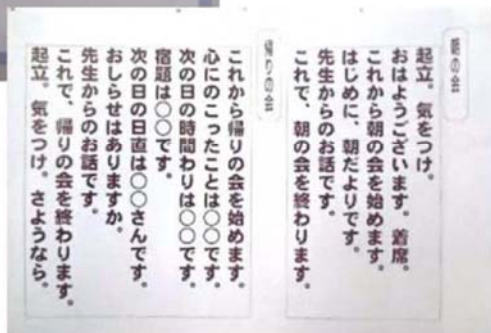 朝の会
起立。気をつけ。
おはようございます。着席。
これから朝の会を始めます。
はじめに、朝だよりです。
先生からのお話です。
これで、朝の会を終わります。
帰りの会
これから帰りの会を始めます。
心にのこったことは○○です。
次の日の時間わりは○○です。
宿題は○○です。
次の日の日直は○○さんです。
おしらせはありますか。
先生からのお話です。
これで、帰りの会を終わります。
起立。気をつけ。さようなら。